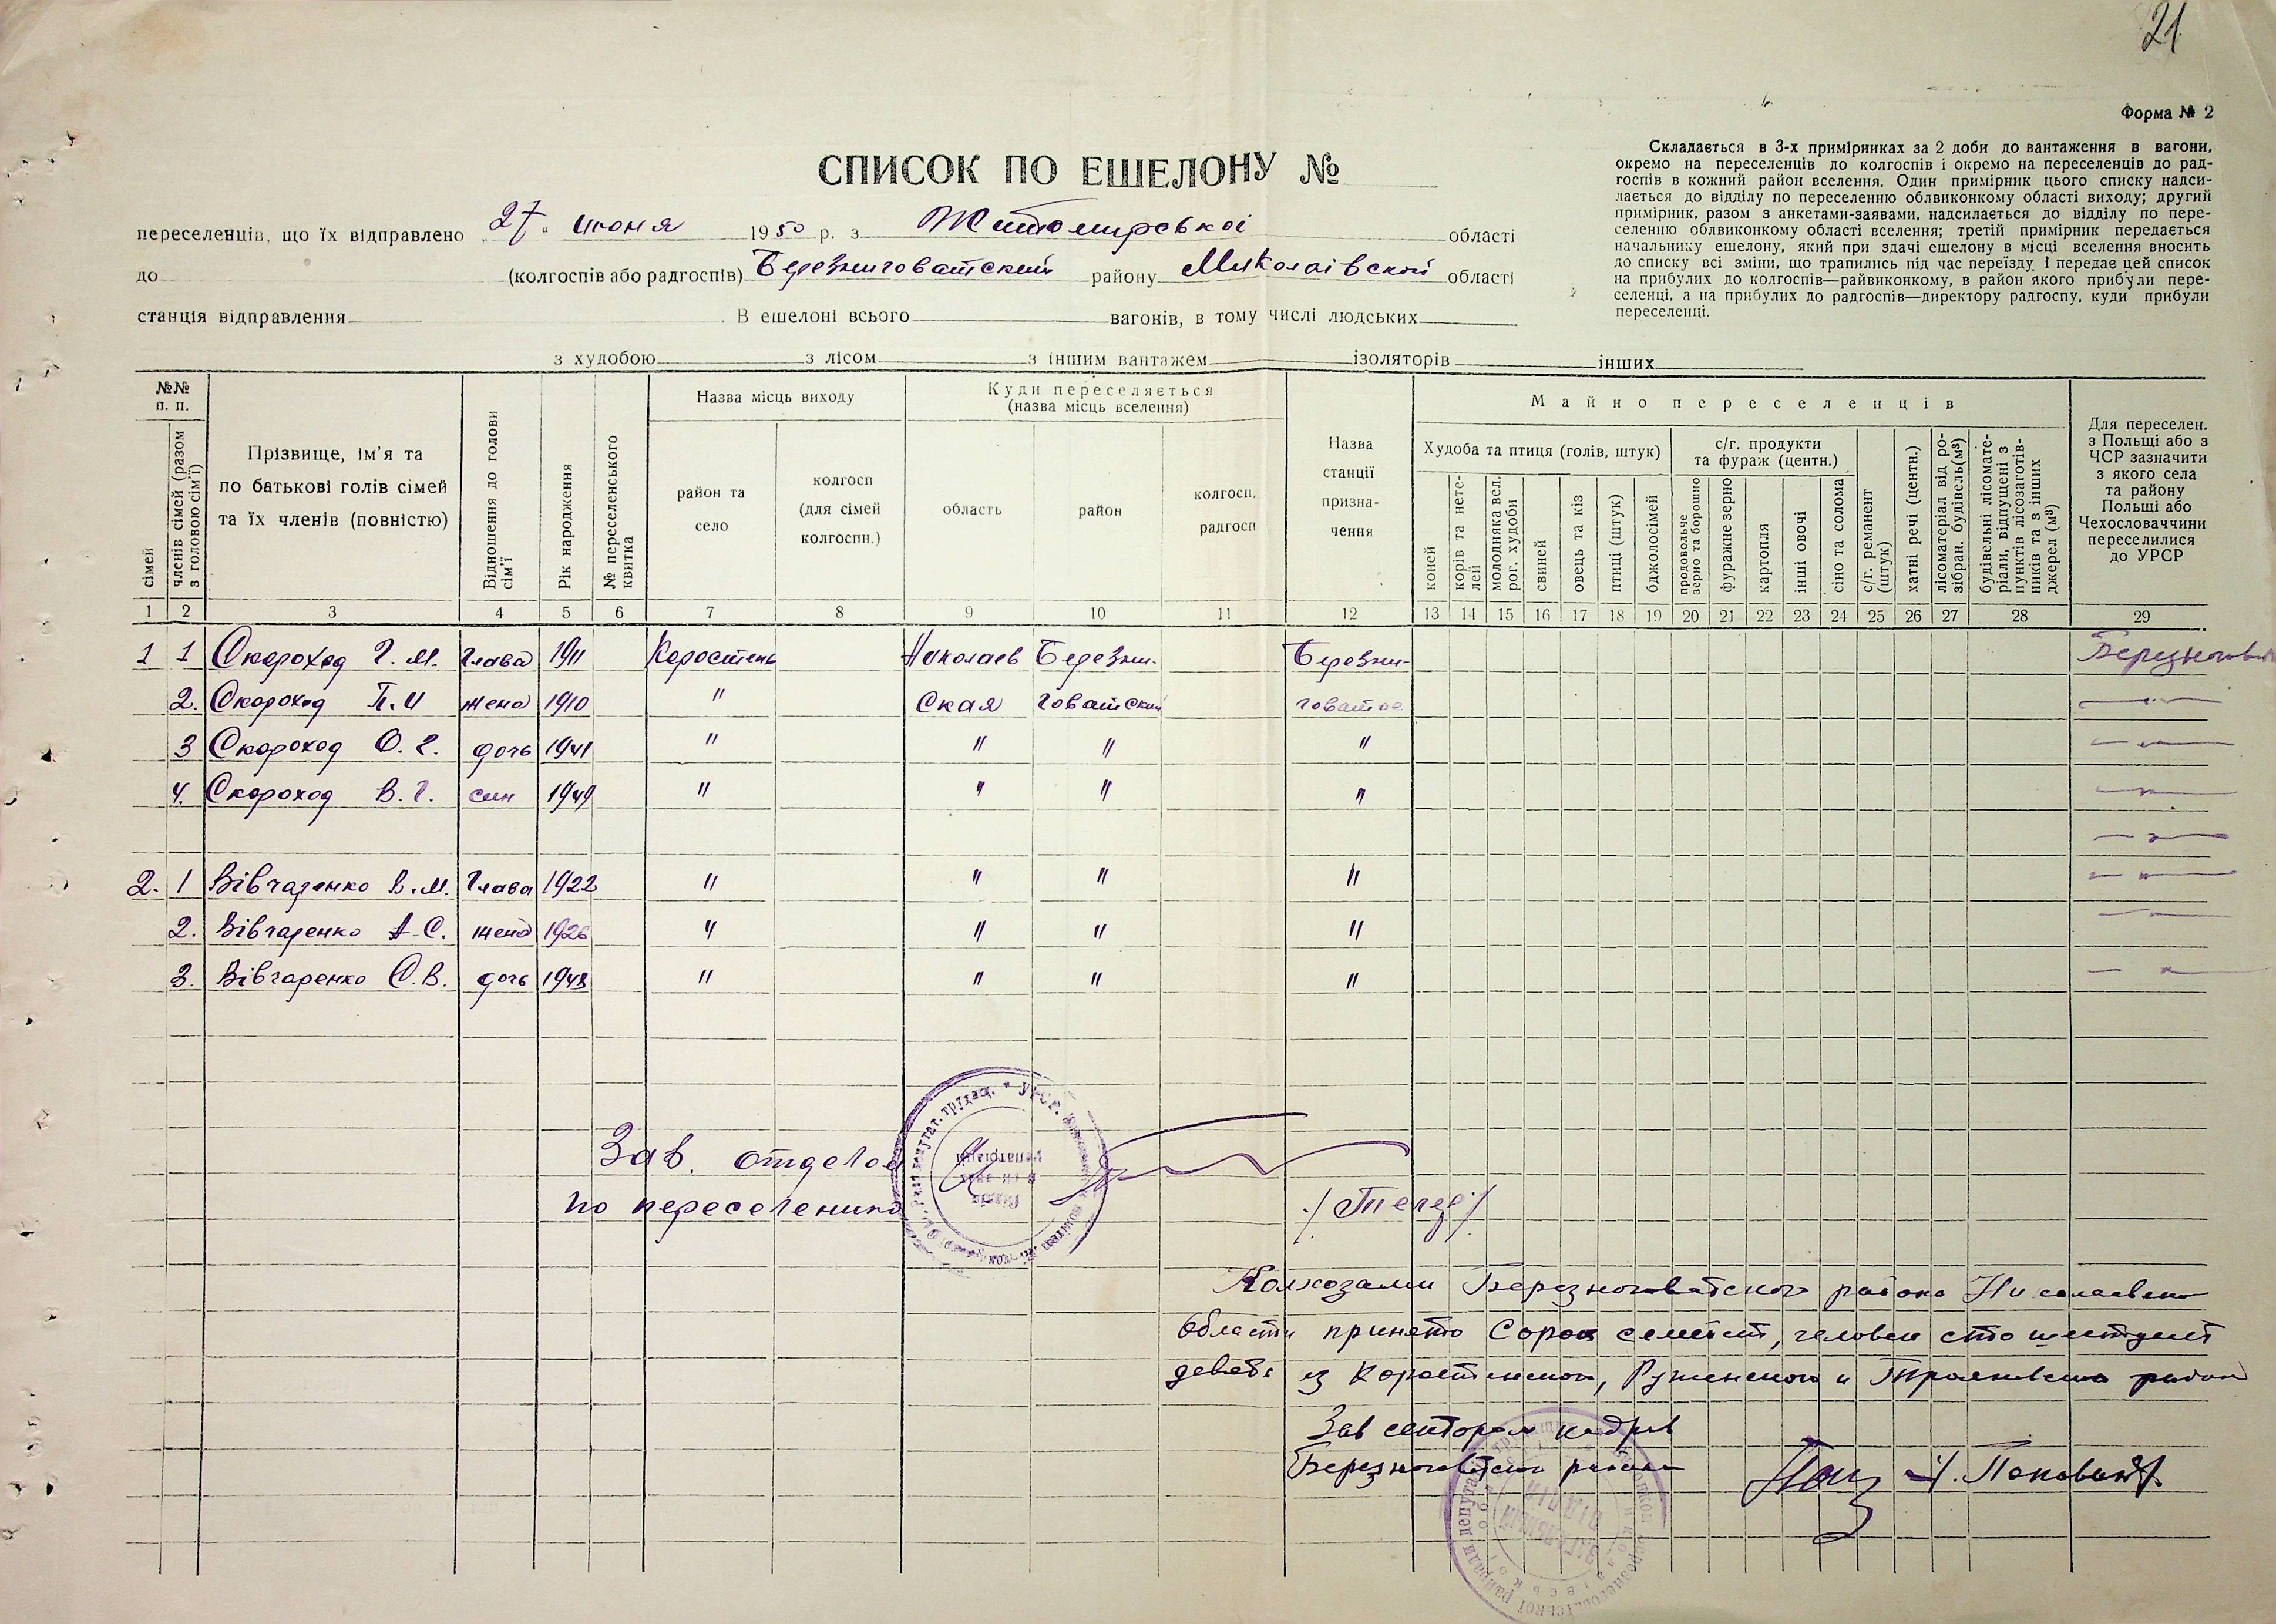 21
Форма № 2
СПИСОК ПО ЕШЕЛОНУ №
Складається в 3-х примірниках за 2 доби до вантаження в вагони,
окремо на переселенців до колгоспів і окремо на переселенців до рад-
госпів в кожний район вселення. Один примірник цього списку надси-
лається до відділу по переселенню облвиконкому області виходу; другий
примірник, разом з анкетами-заявами, надсилається до відділу по пере-
селенню облвиконкому області вселення; третій примірник передається
начальнику ешелону, який при здачі ешелону в місці вселення вносить
до списку всі зміни, що трапились під час переїзду і передає цей список
на прибулих до колгоспів—райвиконкому, в район якого прибули пере-
селенці, а на прибулих до радгоспів—директору радгоспу, куди прибули
переселенці.
переселенців, що їх відправлено „27“ июня 1950 р. з Житомирської області
до (колгоспів або радгоспів) Березниговатский району Миколаївской області
станція відправлення В ешелоні всього вагонів, в тому числі людських
з худобою з лісом з іншим вантажем ізоляторів інших
№№ п. п.
сімей
членів сімей (разом з головою сім'ї)
Прізвище, ім'я та
по батькові голів сімей
та їх членів (повністю)
Відношення до голови сім'ї
Рік народження
№ переселенського квитка
Назва місць виходу
район та село
колгосп (для сімей колгоспн.)
Куди переселяється
(назва місць вселення)
область
район
колгосп, радгосп
Назва станції призна-
чення
Майно переселенців
Худоба та птиця (голів, штук)
коней
корів та нете-
лей
молодняка вел. рог. худоби
свиней
овець та кіз
птиці (штук)
бджолосімей
с/г. продукти та фураж (центн.)
продовольче зерно та борошно
фуражне зерно
картопля
інші овочі
сіно та солома
с/г. реманент (штук)
хатні речі (центн.)
лісоматеріал від ро-
зібран. будівель (м³)
будівельні лісомате-
ріали, відпущені з
пунктів лісозаготів-
ників та з інших
джерел (м³)
Для переселен.
з Польщі або з
ЧСР зазначити
з якого села
та району
Польщі або
Чехословаччини
переселилися
до УРСР
1 2 3 4 5 6 7 8 9 10 11 12 13 14 15 16 17 18 19 20 21 22 23 24 25 26 27 28 29
1 1 Скороход Г. М. Глава 1911 Коростень Николаев Березни- Березни-
2. Скороход П. И жена 1910 " Ская говатский говатое
3 Скороход О. Г. дочь 1941 " " " "
4. Скороход В. Г. син 1949 " " " "
2. 1 Вівчаренко В. М. Глава 1922 " " " "
2. Вівчаренко А. С. жена 1926 " " " "
3. Вівчаренко О. В. дочь 1948 " " " "
Зав. отделом
по переселению
Колхозами Березниговатского района Николаевской
области принято Сорок семей, человек сто шестдесят
девять из Коростенского, Ружинского и район
Зав сектором кадров
Березниговатского района